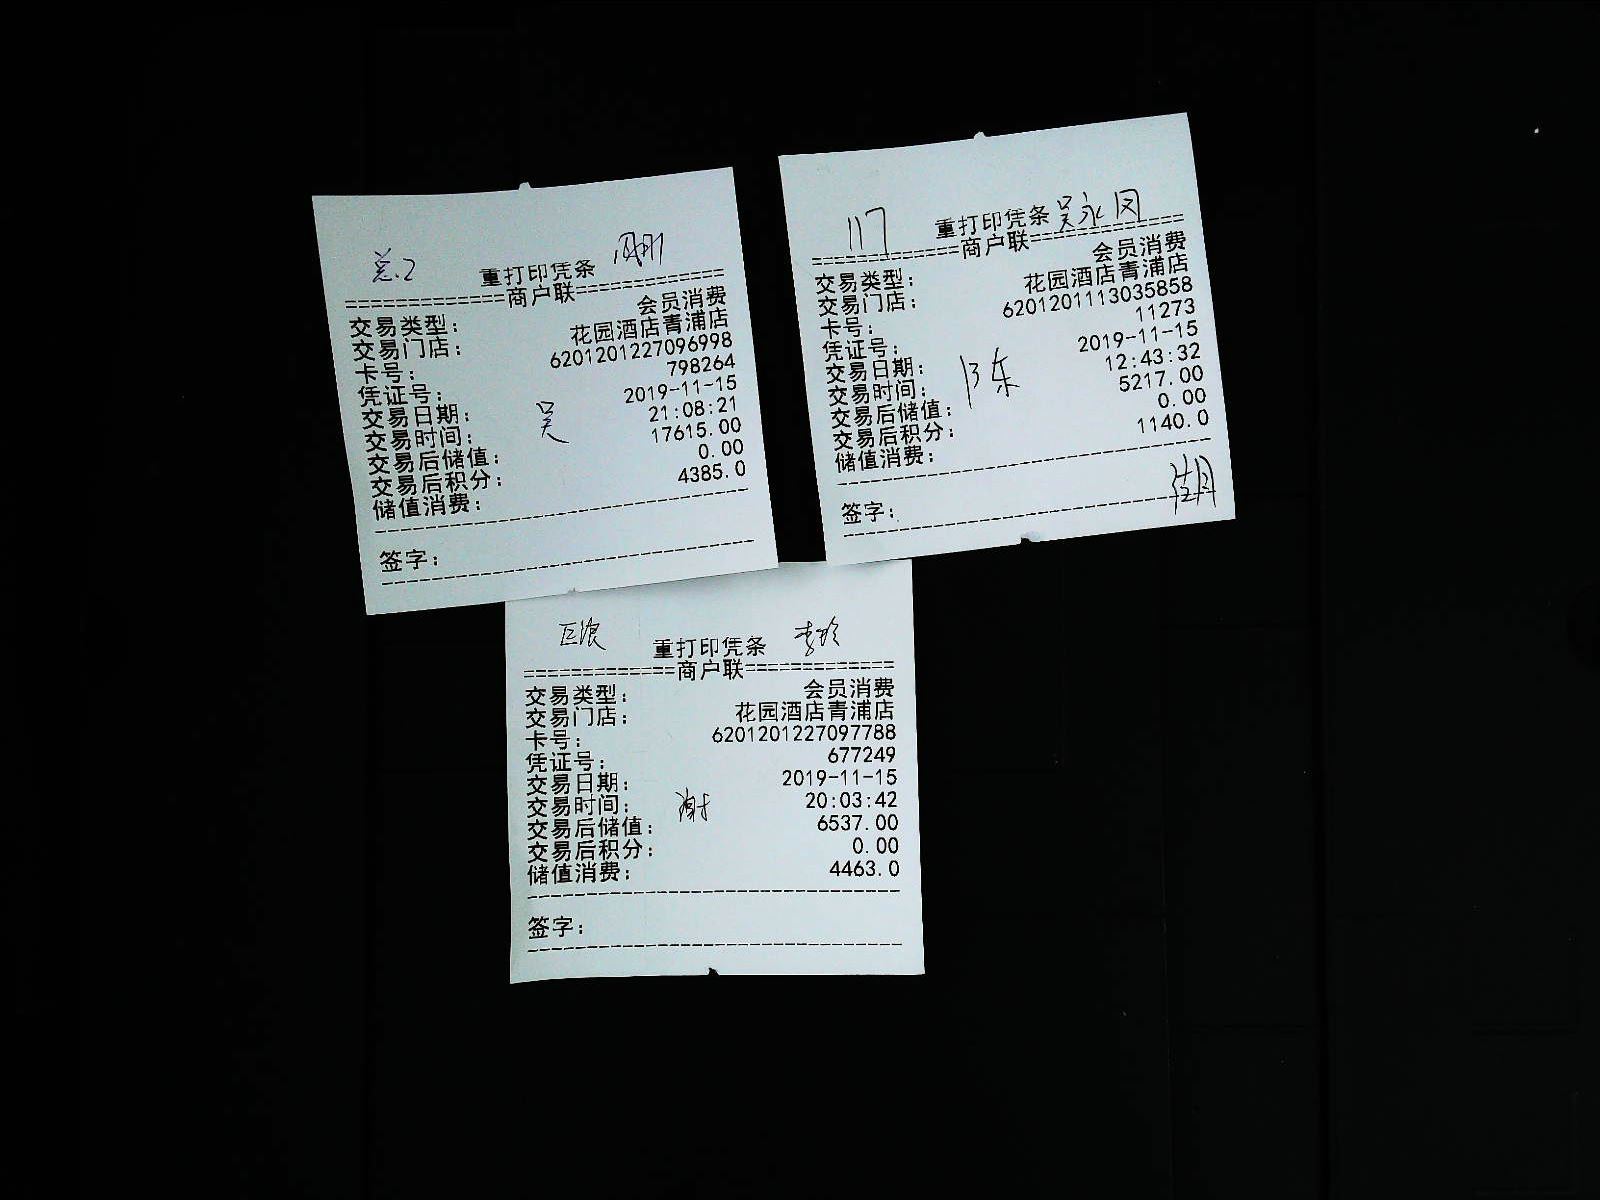 重打印凭条
============商户联============
交易类型: 会员消费
交易门店: 花园酒店青浦店
卡号: 6201201227096998
凭证号: 798264
交易日期: 2019-11-15
交易时间: 21:08:21
吴
交易后储值: 17615.00
交易后积分: 0.00
储值消费: 4385.0
签字:
117 重打印凭条 吴永凤
============商户联============
交易类型: 会员消费
交易门店: 花园酒店青浦店
卡号: 6201201113035858
凭证号: 11273
交易日期: 2019-11-15
交易时间: 12:43:32
陈
交易后储值: 5217.00
交易后积分: 0.00
储值消费: 1140.0
签字:
巨浪 重打印凭条 李珍
============商户联============
交易类型: 会员消费
交易门店: 花园酒店青浦店
卡号: 6201201227097788
凭证号: 677249
交易日期: 2019-11-15
交易时间: 20:03:42
谢
交易后储值: 6537.00
交易后积分: 0.00
储值消费: 4463.0
签字: